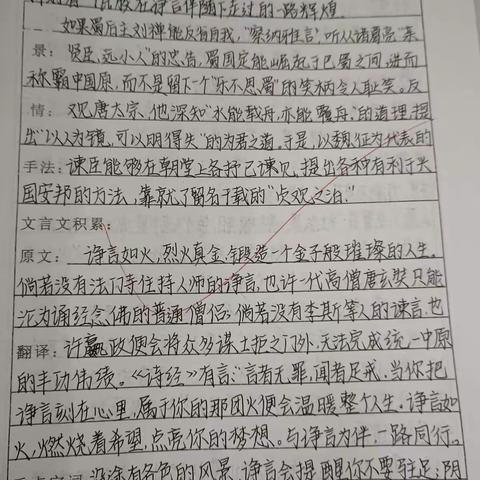 民族在诤言伴随下走过的一路辉煌
如果蜀后主刘禅能反省自我,“察纳雅言”,听从诸葛亮“亲
景:贤臣,远小人”的忠告,蜀国定能崛起于巴蜀之间,进而
称霸中国原,而不是留下一个“乐不思蜀”的笑柄令人耻笑。反
情:观唐太宗,他深知“水能载舟,亦能覆舟。”的道理,提
出“以人为镜,可以明得失”的为君之道,于是,以魏征为代表的
手法:谏臣能够在朝堂上各抒己谏见,提出各种有利于兴
国安邦的方法,靠就了留名于载的“贞观之治。”
文言文积累:
原文:诤言如火,烈火真金,锻造一个金子般璀璨的人生。
倘若没有法门寺住持人师的诤言,也许一代高僧唐玄奘只能
沦为诵经念佛的普通僧侣;倘若没有李斯等人的谏言,也
翻译:许嬴政便会将众多谋士拒之门外,无法完成统一中原
的丰功伟绩。《诗经》有言:“言者无罪,闻者足戒。当你把
诤言刻在心里,属于你的那团火便会温暖整个人生。诤言如
火,燃烧着希望,点亮你的梦想。与诤言为伴,一路同行。
沿途有各色的风景,诤言会提醒你不要驻足;阴